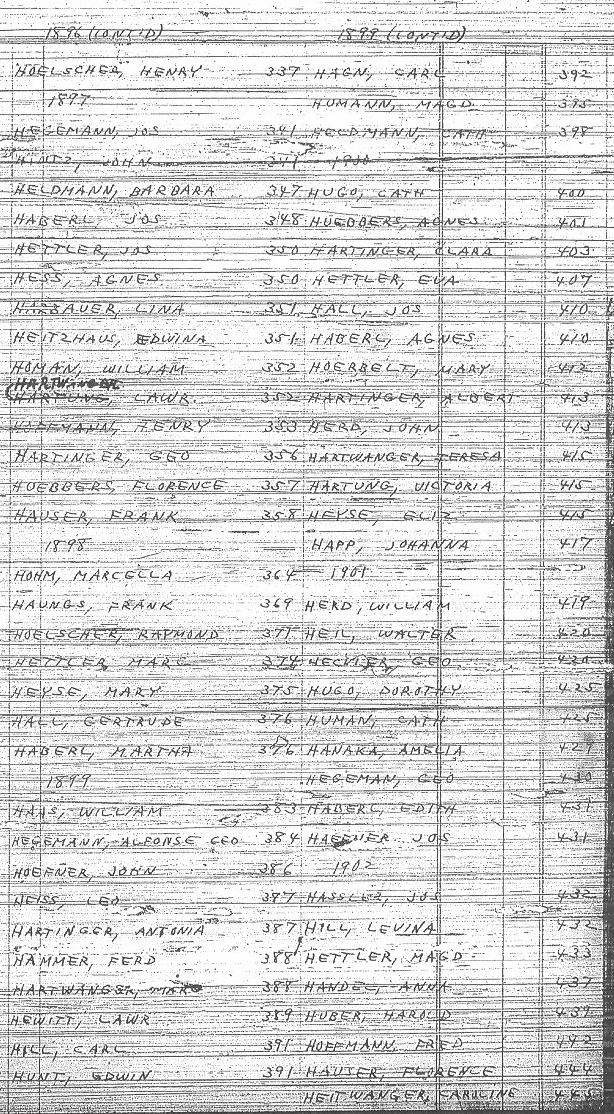 1896 (CONT'D)
HOELSCHER, HENRY 337
1897
HEGEMANN, JOS 341
HINTZ, JOHN 341
HELDMANN, BARBARA 347
HABERL, JOS 348
HETTLER, JOS 350
HESS, AGNES 350
LINA 351
HEITZHAUS, EDWINA 351
HOMAN, WILLIAM 352
HARTWANGER
HARTUNG, LAWR. 352
HOFFMANN, HENRY 353
HARTINGER, GEO 356
HUEBBERS, FLORENCE 357
HAUSER, FRANK 358
1898
HOHM, MARCELLA 364
HAUNGS, FRANK 369
HOELSCHER, RAYMOND 371
HETTLER, MARC 374
HEYSE, MARY 375
HALL, GERTRUDE 376
HABERL, MARTHA 376
1899
HAAS, WILLIAM 383
HEGEMANN, ALFONSE GEO 384
HOEFNER, JOHN 386
HEISS, LEO 387
HARTINGER, ANTONIA 387
HAMMER, FERD 388
HARTWANGER, 388
HEWITT, LAWR 389
HILL, CARL 391
HUNT, EDWIN 391
1899 (CONT'D)
HAGN, CARL 392
HUMANN, MAGD 395
HELDMANN, CATH 398
1900
HUGO, CATH 400
HUEBBERS, AGNES 401
HARTINGER, CLARA 403
HETTLER, EVA 407
HALL, JOS 410
HABERL, AGNES 410
HOERBELT, MARY 412
HARTINGER, ALBERT 413
HERD, JOHN 413
HARTWANGER, TERESA 415
HARTUNG, VICTORIA 415
HEYSE, ELIZ 415
HAPP, JOHANNA 417
1901
HERD, WILLIAM 419
HEIL, WALTER 420
HECKLER, GEO 420
HUGO, DOROTHY 425
HUMAN, CATH 425
HANAKA, AMELIA 427
HEGEMAN, GEO 430
HABERL, EDITH 431
HAEFNER JOS 431
1902
HASSLER, JOS 432
HILL, LEVINA 432
HETTLER, MAGD 433
HANDEL, ANNA 437
HUBER, HAROLD 439
HOFFMANN, FRED 442
HAUSER, FLORENCE 444
HEITWANGER, CAROLINE